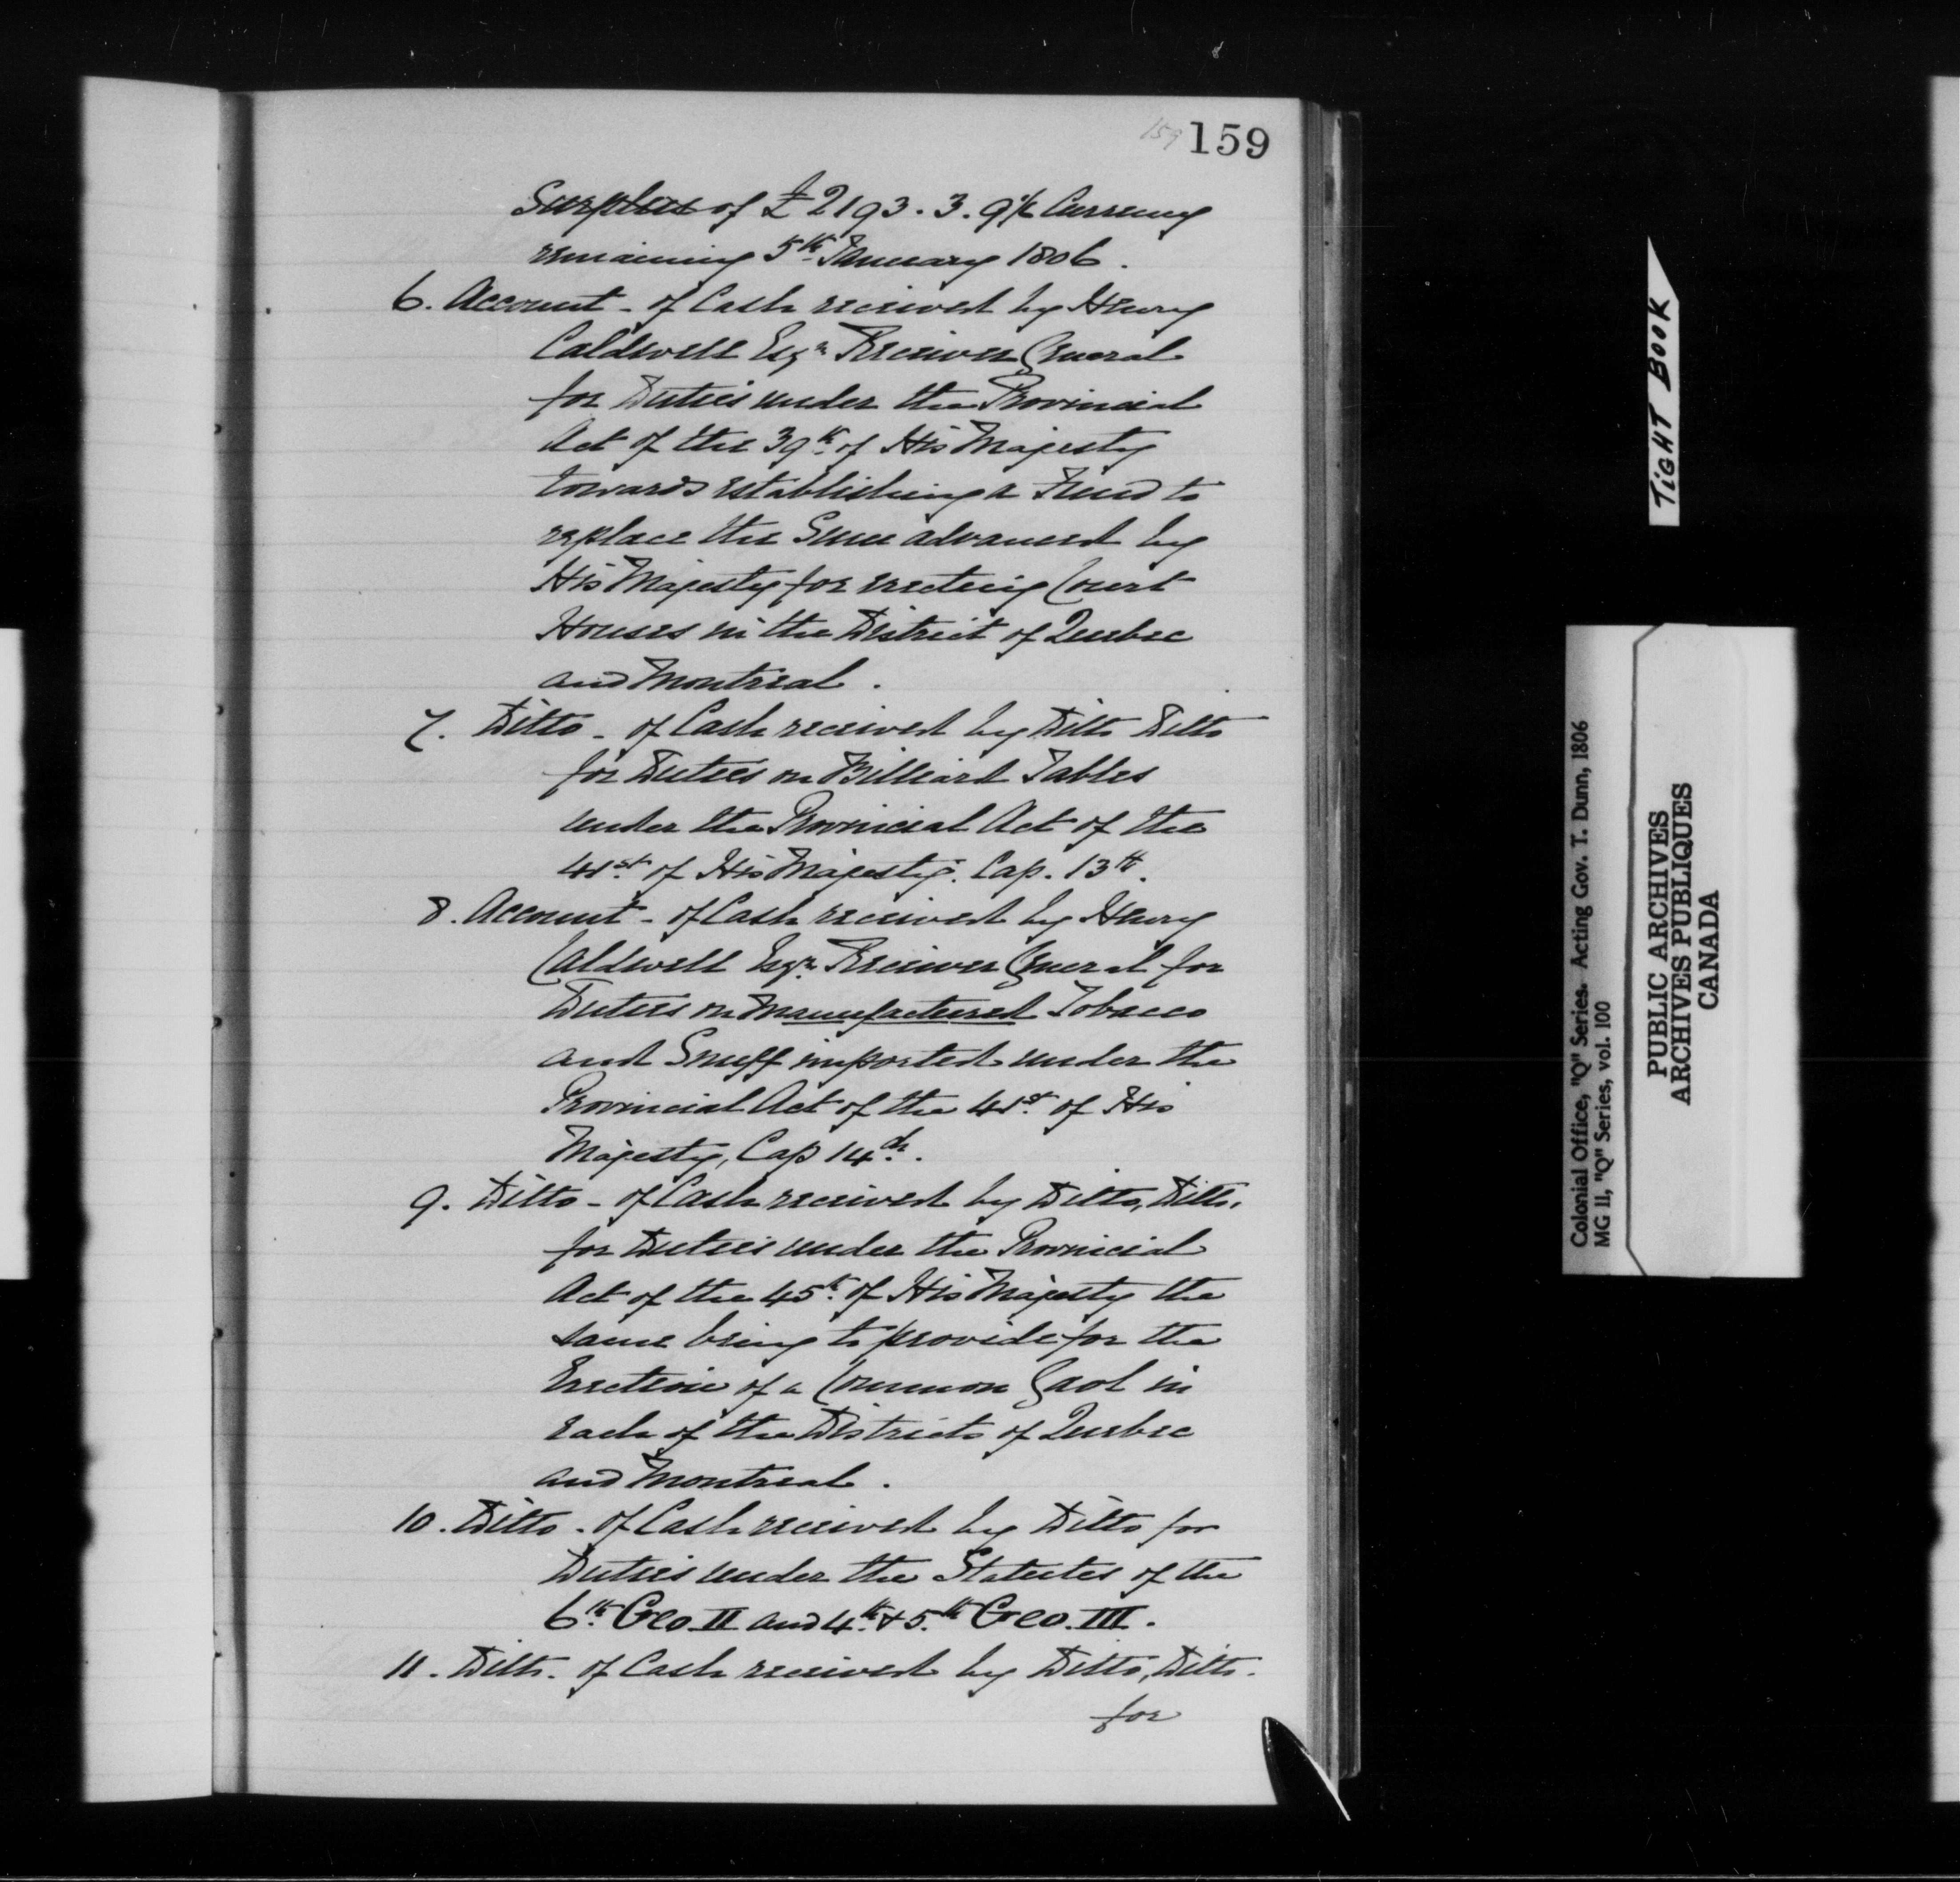 159 159
Surplus of £2193.3.9½ Currency
remaining 5th January 1806.
6. Account - of Cash received by Henry
Caldwell Esqr Receiver General
for Duties under the Provincial
Act of the 39th of His Majesty
towards establishing a Fund to
replace the Sum advanced by
His Majesty for erecting Court
Houses in the District of Quebec
and Montreal.
7. Ditto - of Cash received by Ditto Ditto
for Duties on Billiard Tables
under the Provincial Act of the
41st of His Majesty. Cap. 13th.
8. Account - of Cash received by Henry
Caldwell Esqr. Receiver General for
Duties on Manufactured Tobacco
and Snuff imported under the
Provincial Act of the 41st of His
Majesty, Cap 14th.
9. Ditto - of Cash received by Ditto, Ditto,
for Duties under the Provincial
Act of the 45th of His Majesty the
same being to provide for the
Erection of a Common Gaol in
each of the Districts of Quebec
and Montreal.
10. Ditto - of Cash received by Ditto for
Duties under the Statutes of the
6th Geo. II and 4th & 5th Geo. III.
11. Ditto. of Cash received by Ditto, Ditto.
for
TIGHT BOOK
Colonial Office, "Q" Series. Acting Gov. T. Dunn, 1806
MG 11, "Q" Series, vol. 100
PUBLIC ARCHIVES
ARCHIVES PUBLIQUES
CANADA